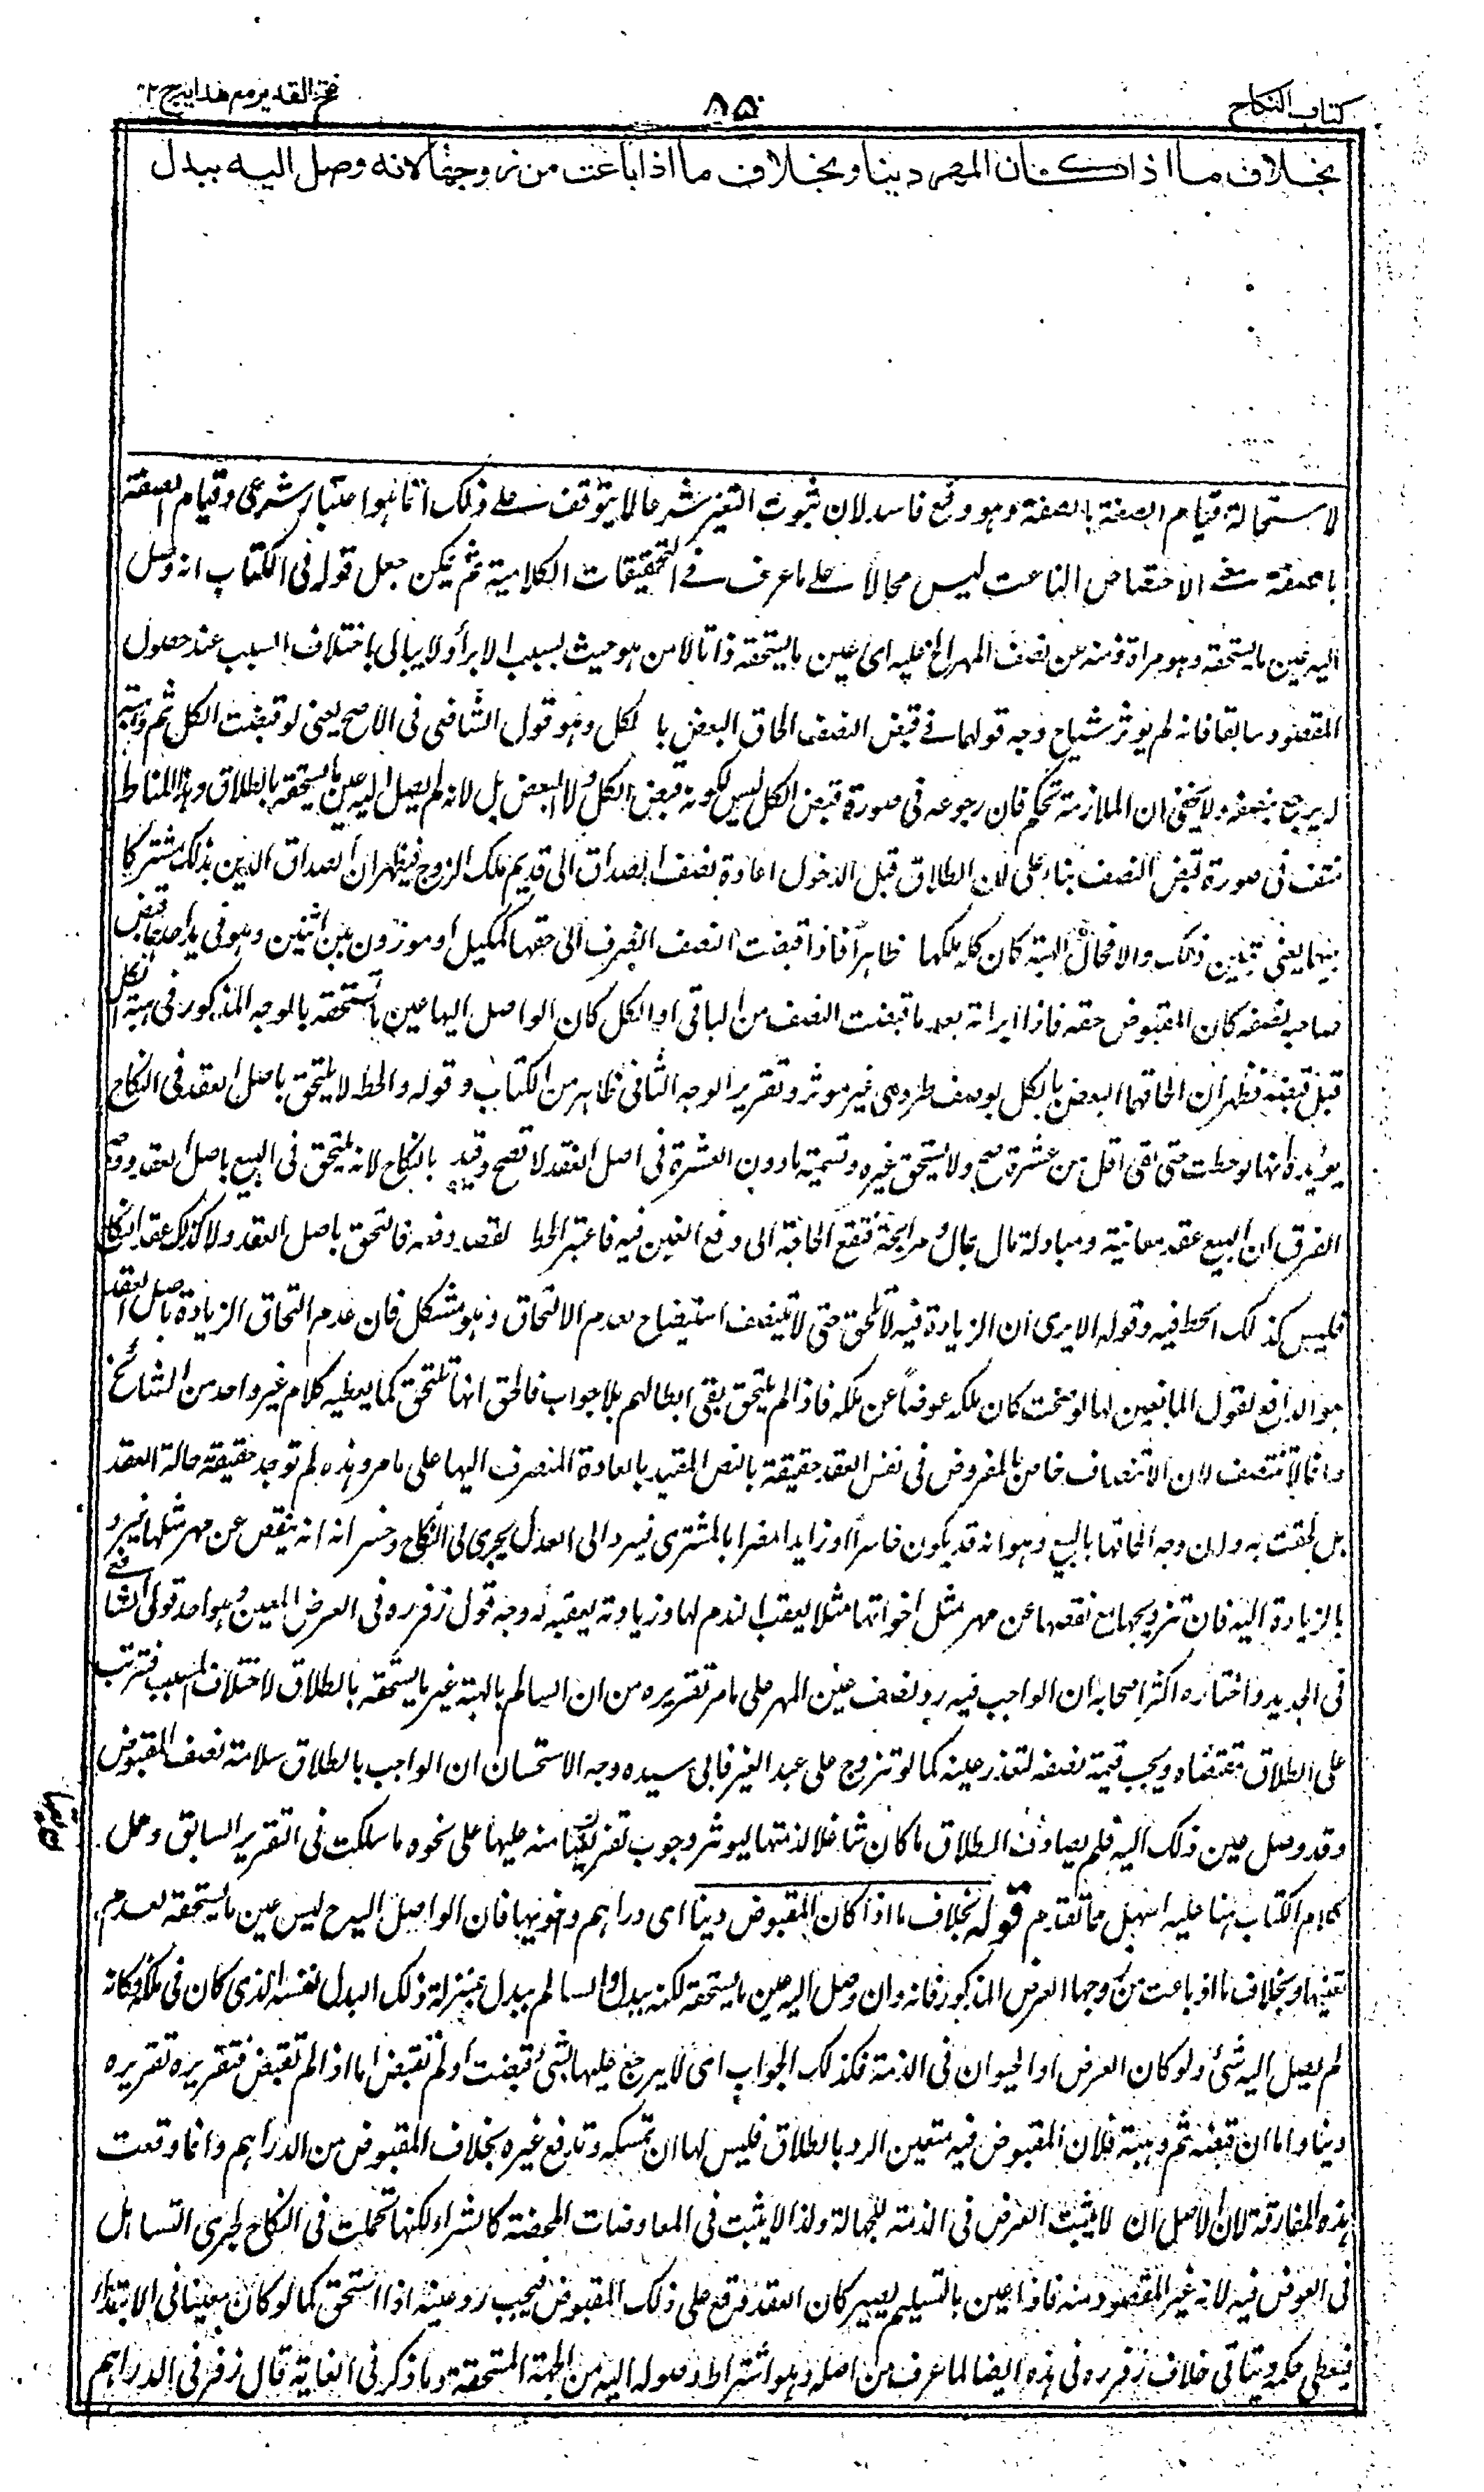 كتاب النكاح
٨٥٠
فتح القدير مع هدايه ج ٢
بخلاف ما اذا كان المهر دينا وبخلاف ما اذا باعت من زوجها لانه وصل اليه ببدل
لاستحالة قيام الصفة بالصفة وهو دفع فاسد لان ثبوت التغير شرعا لا يتوقف على ذلك انما هو اعتبار شرعى وقيام الصفة
بالصفة بمعنى الاختصاص الناعت ليس محالا على ما عرف فى التحقيقات الكلامية ثم يمكن جعل قوله فى الكتاب انه وصل
اليه عين ما يستحقه وهو براءة ذمته عن نصف المهر الخ عليه اى عين ما يستحقه ذاتا لا من هو حيث بسبب الابراء ولا يبالى باختلاف السبب عند حصول
المقصود سابقا فانه لم يؤثر شيا وجه قولهما فى قبض النصف الحاق البعض بالكل وهو قول الشافعى فى الاصح يعنى لو قبضت الكل ثم وهبته
له يرجع بنصفه ولا يخفى ان الملازمة تحكم فان رجوعه فى صورة قبض الكل ليس لكونه قبض الكل ولا البعض بل لانه لم يصل اليه عين ما يستحقه بالطلاق وهذا المناط
منتف فى صورة قبض النصف بناء على ان الطلاق قبل الدخول اعادة نصف الصداق الى قديم ملك الزوج فيظهر ان الصداق الدين بذلك مشتركا
بينهما يعنى تبين ذلك والا فحال الهبة كان كله ملكها ظاهرا فاذا قبضت النصف انصرف الى حقها كمكيل او موزون بين اثنين وهو فى يد احدهما قبض
صاحبه نصفه كان المقبوض حقه فاذا ابراته بعد ما قبضت النصف من الباقى او الكل كان الواصل اليها عين ما تستحقه بالوجه المذكور فى هبة الكل
قبل قبضه فظهر ان الحاقهما البعض بالكل بوصف طردى غير مؤثر وتقرير الوجه الثانى ظاهر من الكتاب وقوله والحط لا يلتحق باصل العقد فى النكاح
يؤيده انها لو حطت حتى بقى اقل من عشرة صح ولا يستحق غيره وتسمية ما دون العشرة فى اصل العقد لا تصح وقيد بالنكاح لانه يلتحق فى البيع باصل العقد ووجه
الفرق ان البيع عقد مغابنة ومبادلة مال بمال ومرابحة فتقع الحاجة الى دفع الغبن فيه فاعتبر الحط لقصد دفعه فالتحق باصل العقد ولا كذلك عقد النكاح
فليس كذلك الحط فيه وقوله الا يرى ان الزيادة فيه لا تلحق حتى لا تتنصف استيضاح بعدم الالتحاق وهو مشكل فان عدم التحاق الزيادة باصل العقد
هو الدافع لقول المانعين لها لو صحت كان ملكه عوضا عن ملكه فاذا لم يلتحق بقى ابطالهم بلا جواب فالحق انها تلتحق كما يعطيه كلام غير واحد من المشائخ
وانما لا تتنصف لان الانتصاف خاص بالمفروض فى نفس العقد حقيقة بالنص المقيد بالعادة المنصرف اليها على ما مر وهذه لم توجد حقيقة حالة العقد
بل لحقت به ولان وجه الحاقها بالبيع وهو انه قد يكون خاسرا او زايدا مضرا بالمشترى فيرد الى العدل يجرى فى النكاح وخسرانه انه ينقص عن مهر مثلها فيرد
بالزيادة اليه فان تزويجها مع نقصها عن مهر مثل اخواتها مثلا يعقب الندم لها وزيادته يعقبه له وجه قول زفر ره فى العرض المعين وهو احد قولى الشافعى
فى الجديد واختاره اكثر اصحابه ان الواجب فيه رد نصف عين المهر على ما مر تقريره من ان السالم بالهبة غير ما يستحقه بالطلاق لاختلاف السبب فترتب
على الطلاق مقتضاه ويجب قيمة نصفه لتعذر عينه كما لو تزوج على عبد الغير فابى سيده وجه الاستحسان ان الواجب بالطلاق سلامة نصف المقبوض
وقد وصل عين ذلك اليه فلم يصادف الطلاق ما كان شاغلا لذمتها ليوثر وجوب تفريغها منه عليها على نحوه ما سلكت فى التقرير السابق وحمل
كلام الكتاب هنا عليه اسهل مما تقدم قوله بخلاف ما اذا كان المقبوض دينا اى دراهم ونحوها فان الواصل اليه ح ليس عين ما يستحقه لعدم
تعينها وبخلاف ما اذ باعت من زوجها العرض المذكور فانه وان وصل اليه عين ما يستحقه لكنه ببدل والسالم ببدل بمنزلة ذلك البدل نفسه الذى كان فى ملكه فكانه
لم يصل اليه شئ ولو كان العرض او الحيوان فى الذمة فكذلك الجواب اى لا يرجع عليها بشئ قبضت او لم تقبض اما اذا لم تقبض فتقريره تقريره
دينا واما ان قبضه ثم وهبته فلان المقبوض فيه متعين الرد بالطلاق فليس لها ان تمسكه وتدفع غيره بخلاف المقبوض من الدراهم وانما وقعت
هذه المفارقة لان الاصل ان لا يثبت العرض فى الذمة للجهالة ولذا لا يثبت فى المعاوضات المحضة كالشراء لكنها تحملت فى النكاح لجرى التساهل
فى العوض فيه لانه غير المقصود منه فاذا عين بالتسليم يصير كان العقد وقع على ذلك المقبوض فيجب رد عينه اذا استحق كما لو كان معينا فى الابتداء
فيعطى حكمه ويتاتى خلاف زفر ره فى هذه ايضا لما عرف من اصله وهو اشتراط وصوله اليه من الجهة المستحقة وما ذكر فى الغاية قال زفر فى الدراهم